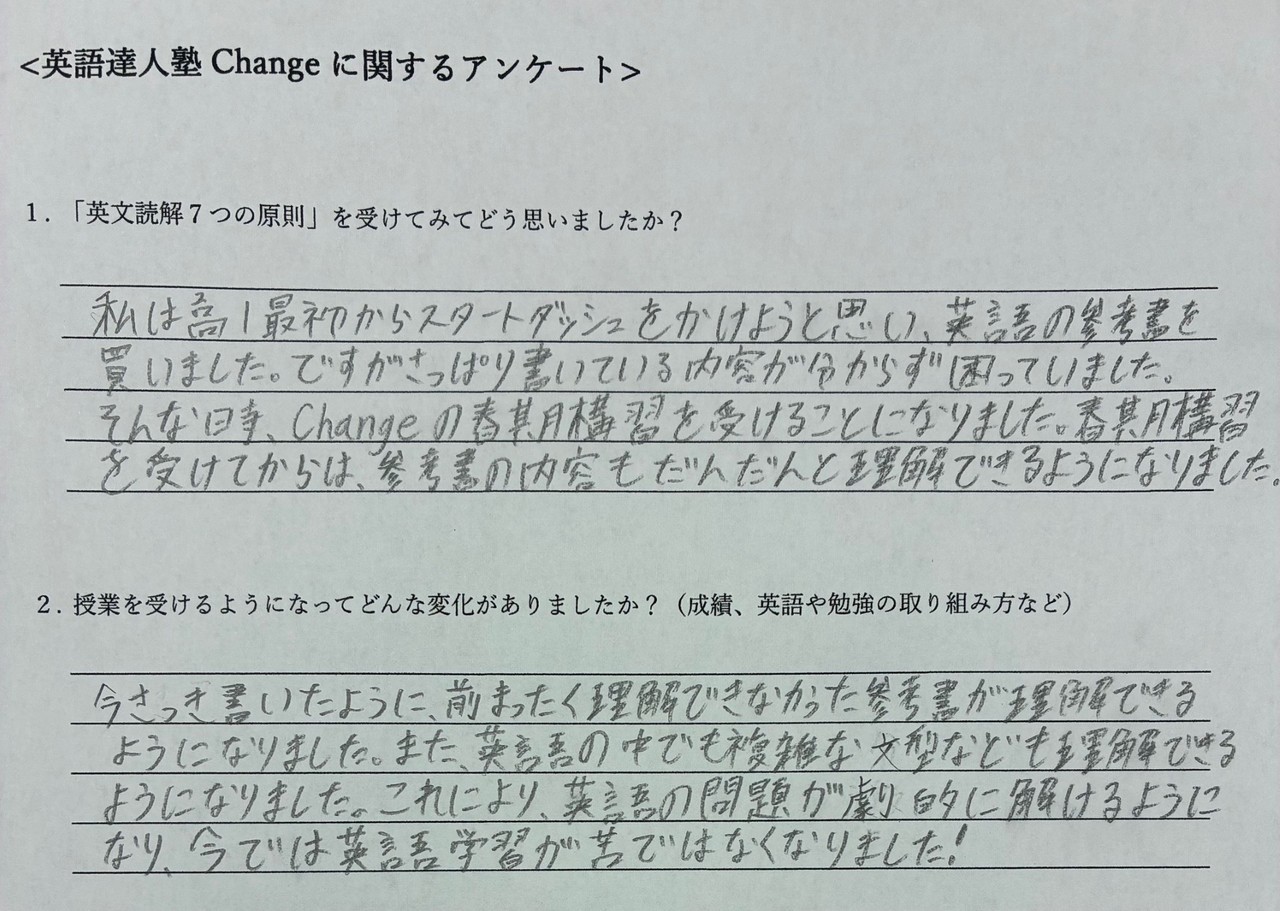 <英語達人塾 Change に関するアンケート>
1．「英文読解７つの原則」を受けてみてどう思いましたか？
私は高1最初からスタートダッシュをかけようと思い、英語の参考書を
買いました。ですがさっぱり書いている内容が分からず困っていました。
そんな時、Changeの春期構習を受けることになりました。春期構習
を受けてからは、参考書の内容もだんだんと理解できるようになりました。
2．授業を受けるようになってどんな変化がありましたか？（成績、英語や勉強の取り組み方など）
今さっき書いたように、前まったく理解できなかった参考書が理解できる
ようになりました。また、英語の中でも複雑な文型なども理解できる
ようになりました。これにより、英語の問題が劇的に解けるように
なり、今では英語学習が苦ではなくなりました！